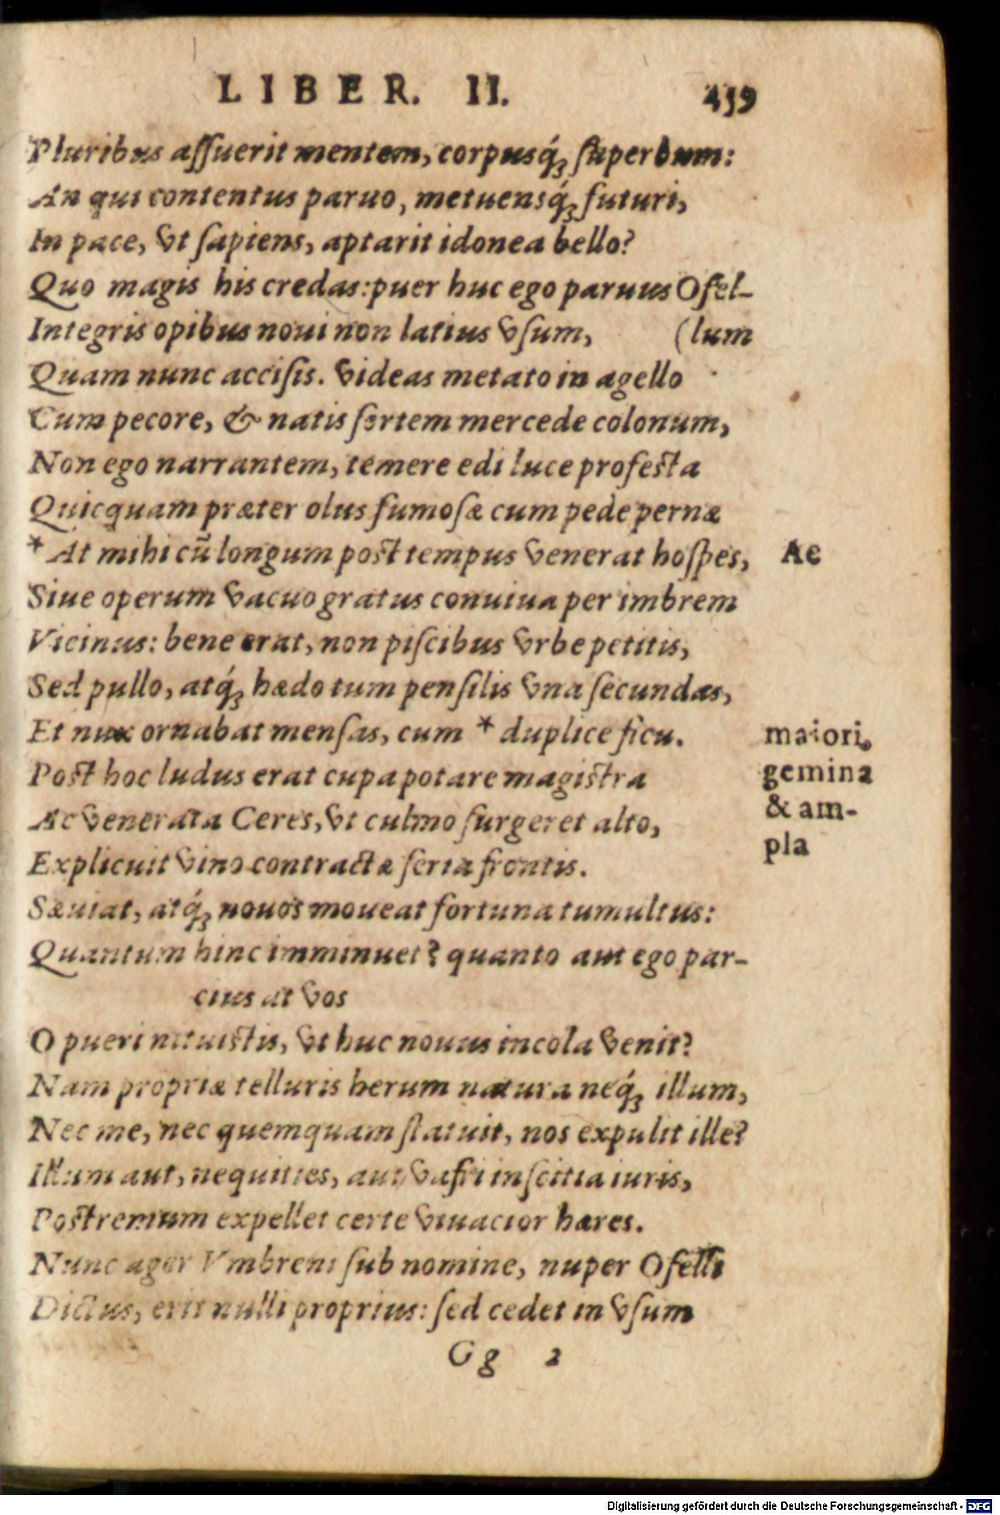 LIBER. II. 459
Pluribus assuerit mentem, corpusq́; superbum:
An qui contentus paruo, metuensq́; futuri,
In pace, vt sapiens, aptarit idonea bello?
Quo magis his credas: puer huc ego paruus Ofel-
Integris opibus noui non latius vsum, (lum
Quam nunc accisis. Videas metato in agello
Cum pecore, & natis fortem mercede colonum,
Non ego narrantem, temere edi luce profesta
Quicquam præter olus fumosæ cum pede pernæ
* At mihi cū longum post tempus venerat hospes, Ac
Siue operum vacuo gratus conuiua per imbrem
Vicinus: bene erat, non piscibus vrbe petitis,
Sed pullo, atq́; hædo tum pensilis vna secundas,
Et nux ornabat mensas, cum * duplice ficu. maiori,
Post hoc ludus erat cupa potare magistra gemina
Ac venerata Ceres, vt culmo surgeret alto, & am-
Explicuit vino contractæ seria frontis. pla
Sæuiat, atq́; nouos moueat fortuna tumultus:
Quantum hinc imminuet? quanto aut ego par-
cius aut vos
O pueri nituistis, vt huc nouus incola venit?
Nam propriæ telluris herum natura neq́; illum,
Nec me, nec quemquam statuit, nos expulit ille?
Illum aut, nequities, aut vafri inscitia iuris,
Postremum expellet certe viuacior hæres.
Nunc ager Vmbreni sub nomine, nuper Ofelli
Dictus, erit nulli proprius: sed cedet in vsum
Gg 2
Digitalisierung gefördert durch die Deutsche Forschungsgemeinschaft - DFG